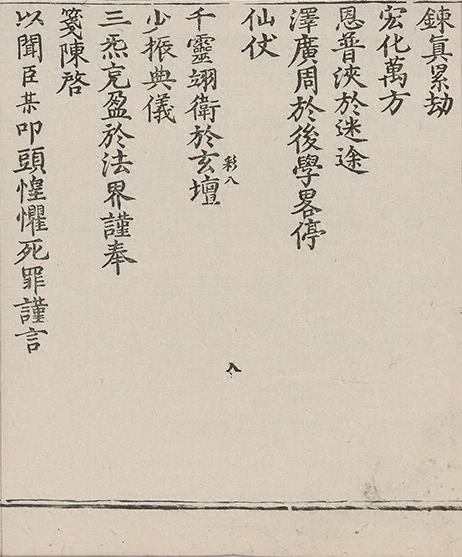 鍊真累劫
宏化萬方
恩普浹於迷途
澤廣周於後學畧停
仙仗
千靈翊衛於玄壇
彩八
八
少振典儀
三炁充盈於法界謹奉
箋陳啓
以聞臣某叩頭惶懼死罪謹言